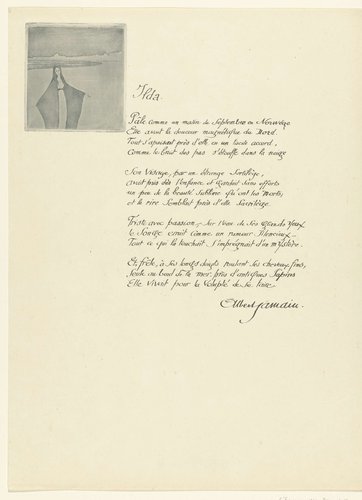 Ilda.
Pâle comme un matin de Septembre en Norwège
Elle avait la douceur magnétique du Nord.
Tout s'apaisait près d'elle en un tacite accord,
Comme le bruit des pas s'étouffe dans la neige
Son Visage, par un étrange Sortilège,
avait pris dès l'enfance, et gardait Sans efforts
un peu de la beauté Sublime qu'ont les morts;
et le rire Semblait près d'elle Sacrilège.
Triste avec passion, Sur l'eau de Ses Grands Yeux
le Songe errait comme un rameur Silencieux.
Tout ce qui la touchait S'imprégnait d'un mystère.
Et, frêle, à Ses longs doigts roulant Ses cheveux fins,
Seule au bord de la mer, près d'antiques Sapins
Elle Vivait pour la Volupté de Se taire.
Albert Samain.